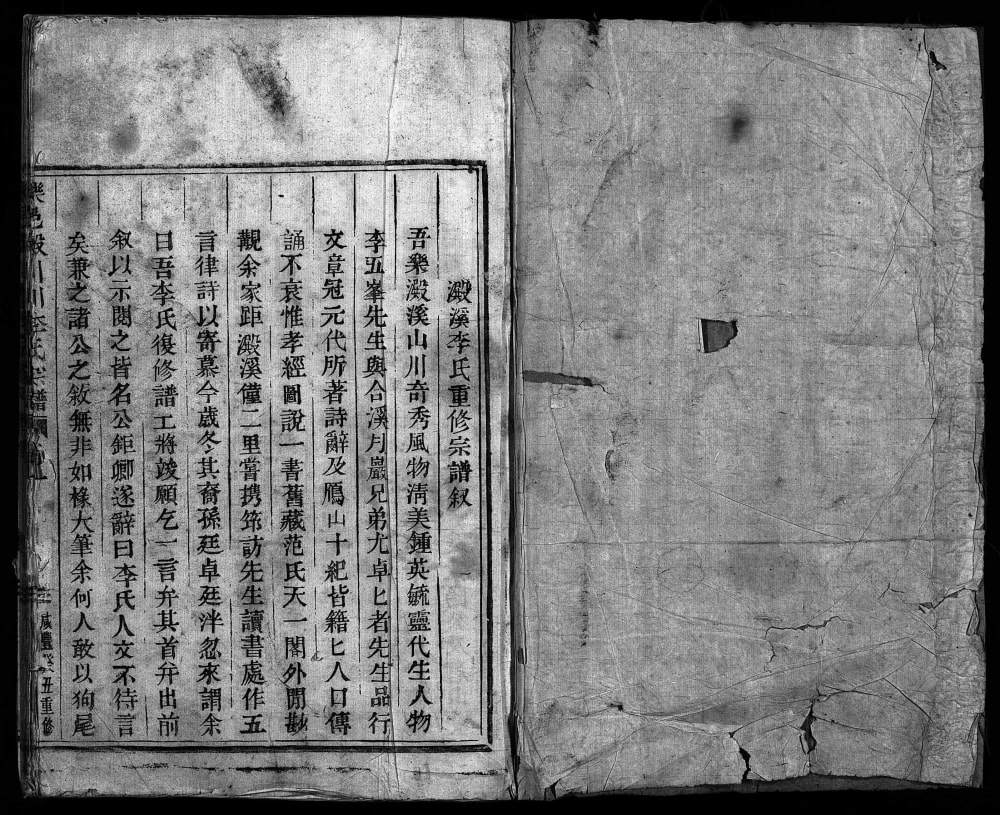 澱溪李氏重修宗譜叙
吾樂澱溪山川奇秀風物淸美鍾英毓靈代生人物
李五峯先生與合溪月巖兄弟尤卓匕者先生品行
文章冠元代所著詩辭及鴈山十紀皆籍匕人口傳
誦不衰惟孝經圖說一書舊藏范氏天一閣外間尠
觀余家距澱溪僅二里嘗携筇訪先生讀書處作五
言律詩以寄慕今歲冬其裔孫廷卓廷泮忽來謂余
曰吾李氏復修譜工將竣願乞一言弁其首弁出前
叙以示閱之皆名公鉅卿遂辭曰李氏人文不待言
矣兼之諸公之敘無非如椽大筆余何人敢以狗尾
樂邑澱川李氏宗譜
咸豐癸丑重修